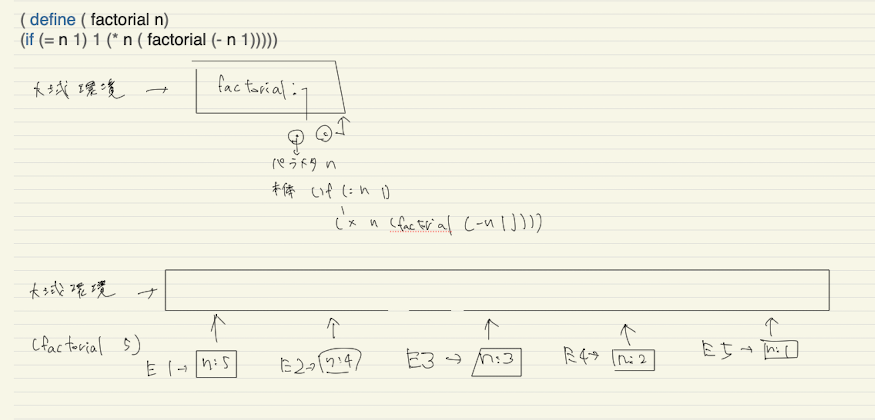 ( define ( factorial n)
(if (= n 1) 1 (* n ( factorial (- n 1)))))
大域環境 → factorial:
パラメタ n
本体 (if (= n 1)
1
(* n (factorial (- n 1))))
大域環境 →
(factorial 5)
E1→ n:5 E2→ n:4 E3→ n:3 E4→ n:2 E5→ n:1